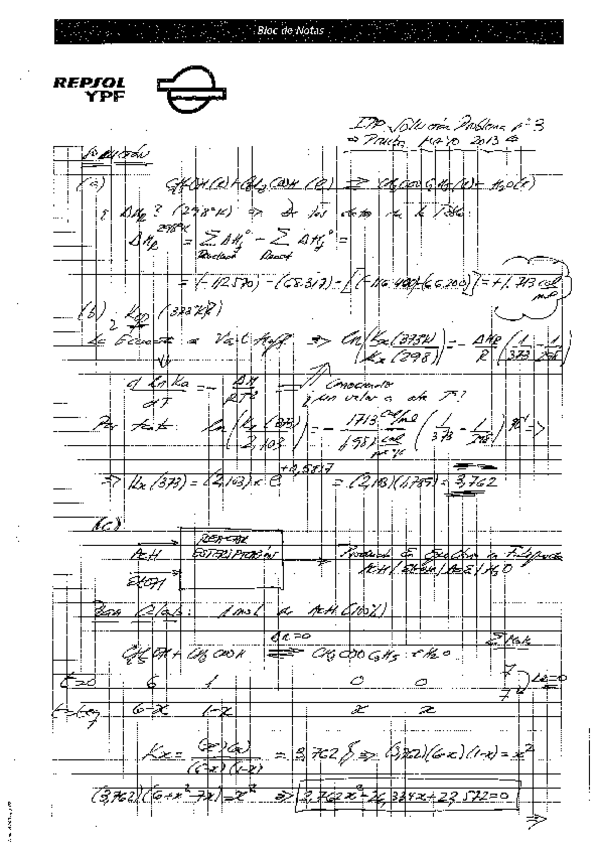 Bloc de Notas
REPSOL
YPF
Solución Problema nº 3
⇒ Prueba MAYO 2013 ⇐
Solución
(a) C2H5OH(l) + CH3COOH (l) ⇄ CH3COOC2H5(l) + H2O(l)
¿ΔHR? (298ºK) ⇒ de los datos de la Tabla:
ΔHR 298ºK = Σ Product ΔHf° − Σ React ΔHf° =
= (-112.570) - (68.317) - [(-116.400)+(-66.200)] = +1.713 cal/mol
(b) ¿ (373ºK)
la Ecuación de Van't Hoff ⇒ ln(Kx(373K)/Kx(298)) = - ΔHR/R (1/373 - 1/298)
d ln Ka/dT = - ΔH/RT²
un valor a otra Tª?
Por tanto: ln(Kx(373)/2,103) = - 1713 cal/mol / 1,987 cal/mol ºK (1/373 - 1/298) ºK⁻¹ ⇒
⇒ Kx(373) = (2,103) x e +0,5817 = (2,103)(1,789) = 3,762
(c)
REACTOR
AcH ESTERIFICACIÓN Producto en Equilibrio
EtOH AcH/EtOH/AcE/H2O
Base Cálculo: 1 mol de AcH (100%)
Δn=0 Σ Mols
C2H5OH + CH3COOH ⇄ CH3COOC2H5 + H2O
t=0 6 1 0 0 7
Δn=0
t=teq 6-x 1-x x x 7
Kx = (x)(x)/(6-x)(1-x) = 3,762 } ⇒ (3,762)(6-x)(1-x) = x²
(3,762)(6+x²-7x) = x² ⇒ 2,762x²-26,334x+22,572=0
⇒